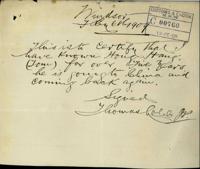 Windsor
This is to Certify that I
have known Hong Hang
(Tom) for over Five Years
he is going to China and
coming back again.
Signed
Thomas
00760